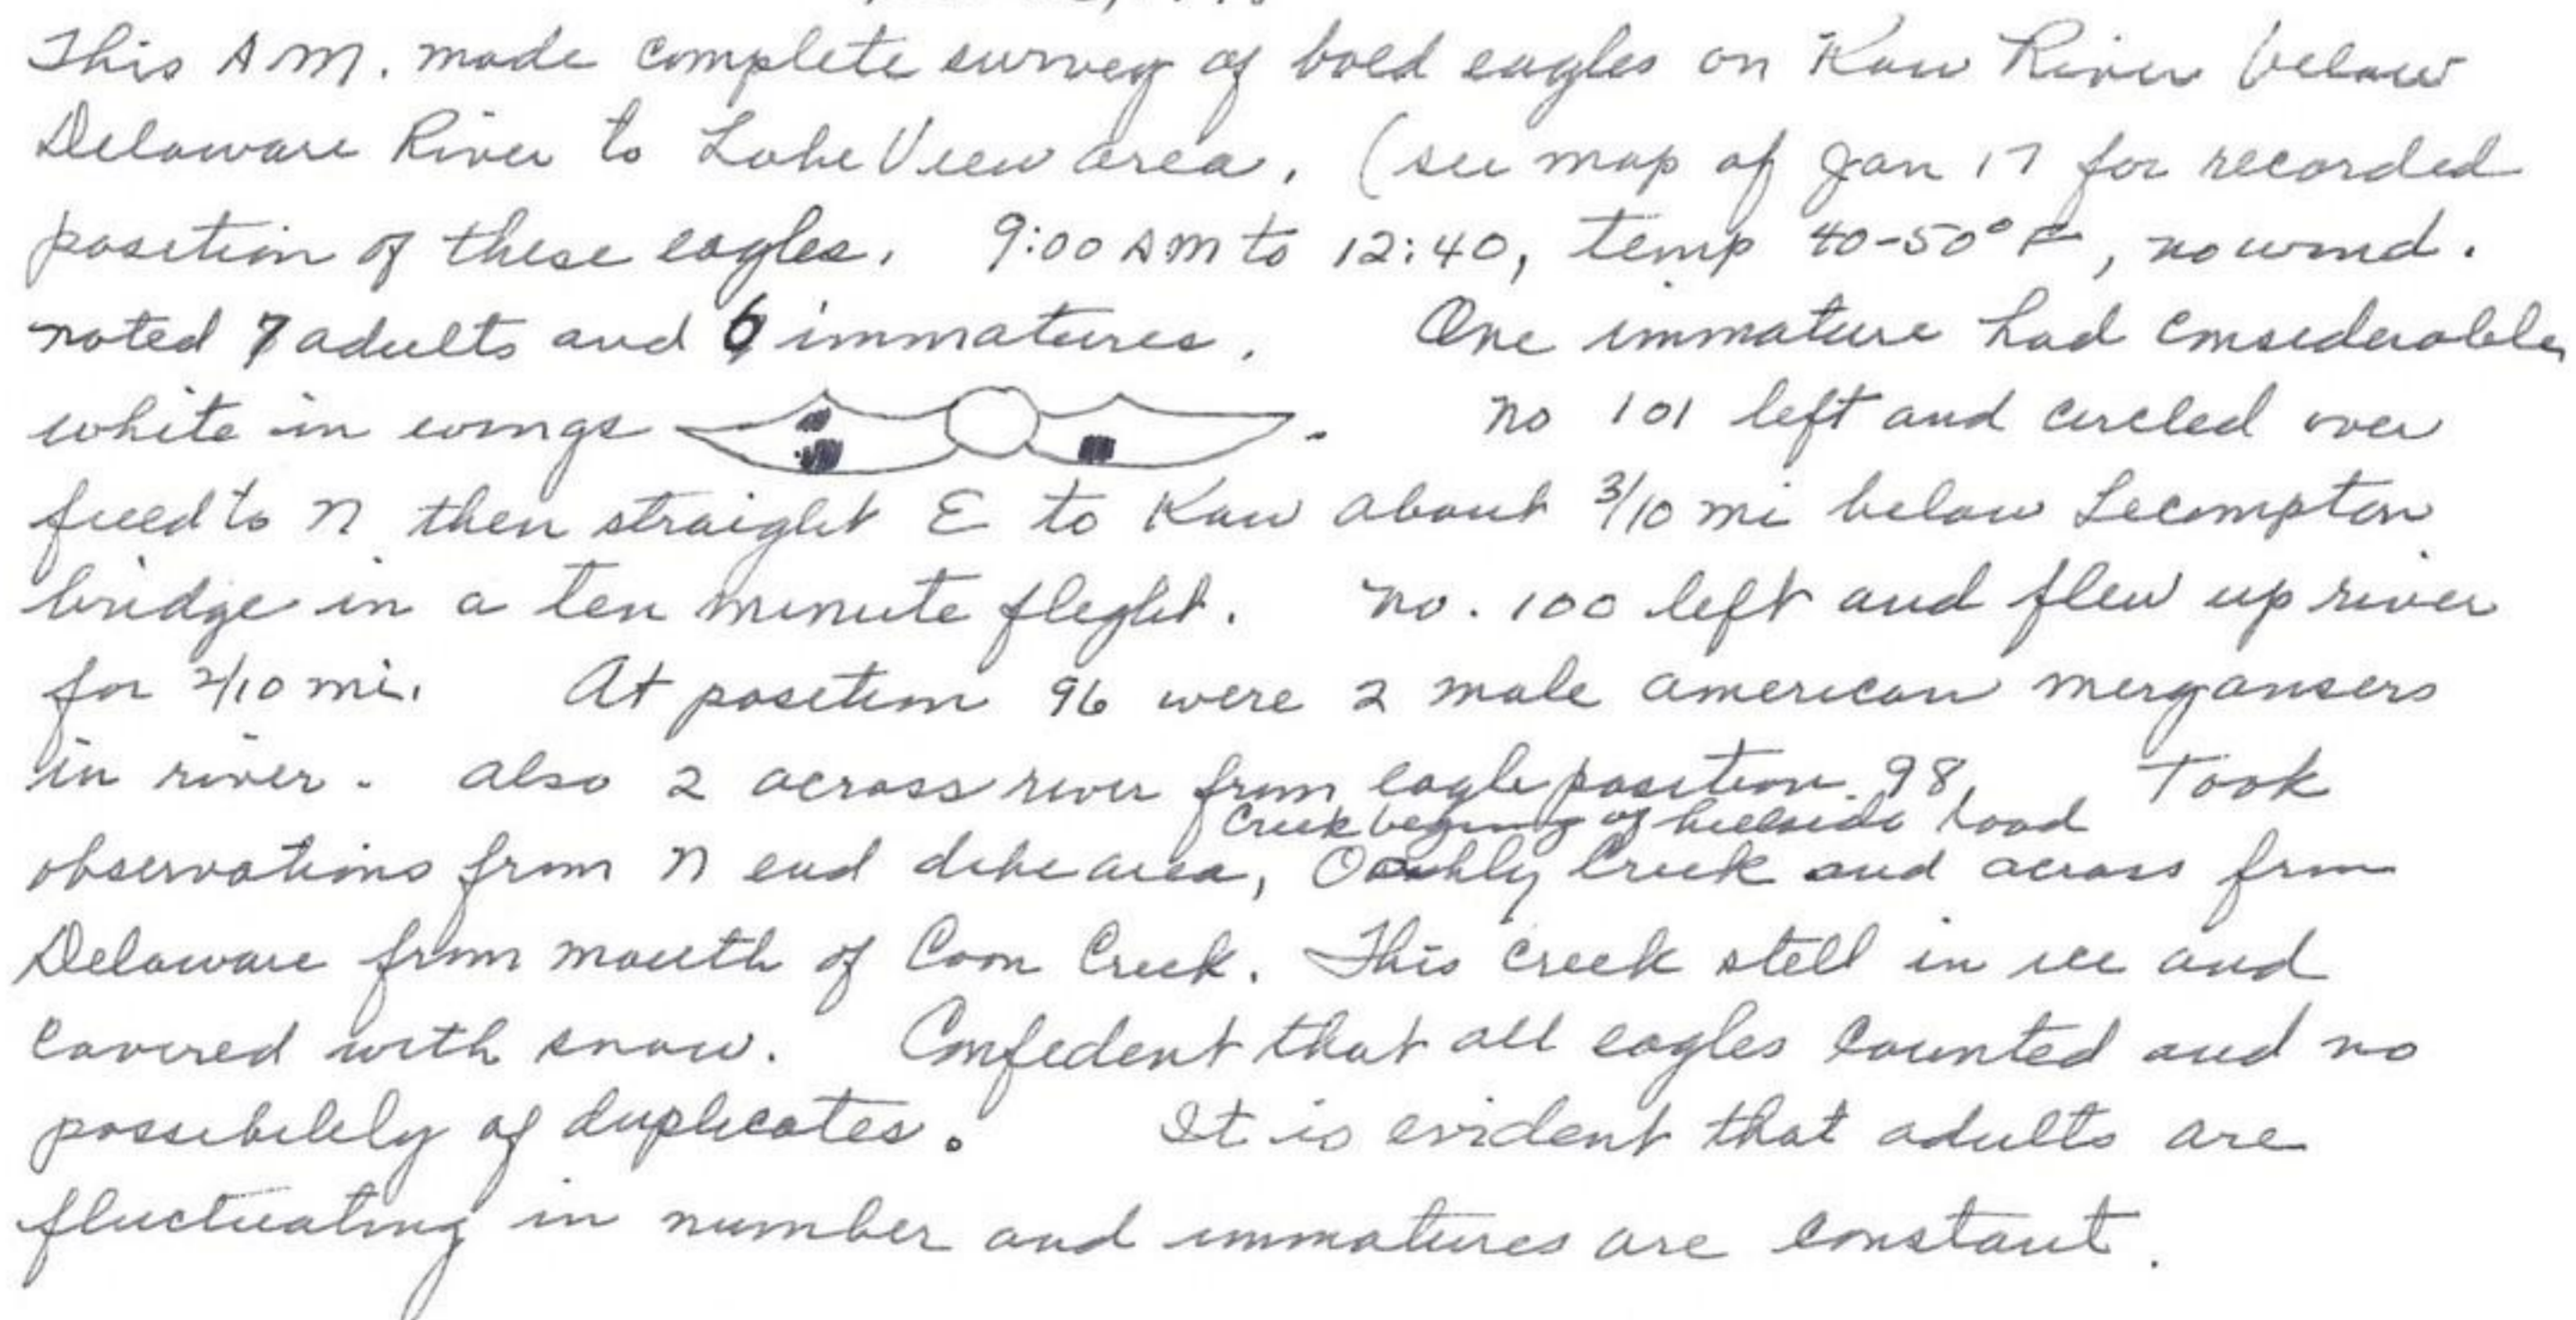 This A.M. made complete survey of bald eagles on Kaw River below
Delaware River to Lake View area. (see map of Jan 17 for recorded
position of these eagles. 9:00 AM to 12:40, temp 40-50° F, no wind.
noted 7 adults and 6 immatures. One immature had considerable
white in wings . No 101 left and circled over
field to N then straight E to Kaw about 3/10 mi below Lecompton
bridge in a ten minute flight. No. 100 left and flew up river
for 2/10 mi. At position 96 were 2 male american mergansers
in river. Also 2 across river from eagle position 98. Took
Creek of hillside road
observations from N end dike area, Oakly Creek and across from
Delaware from mouth of Coon Creek. This creek still in ice and
covered with snow. Confident that all eagles counted and no
possibility of duplicates. It is evident that adults are
fluctuating in number and immatures are constant.